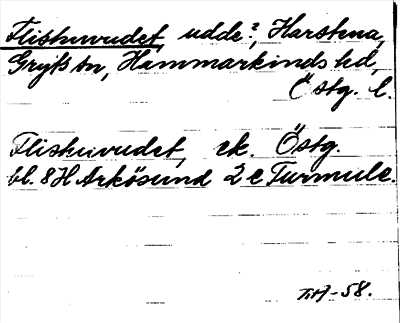 Flishuvudet, udde?, Harstena,
Gryts sn, Hammarkinds hd,
Östg. l.
Flishuvudet, ek. Östg.
bl. 8H Arkösund 2 e Turmule.
TH-58.